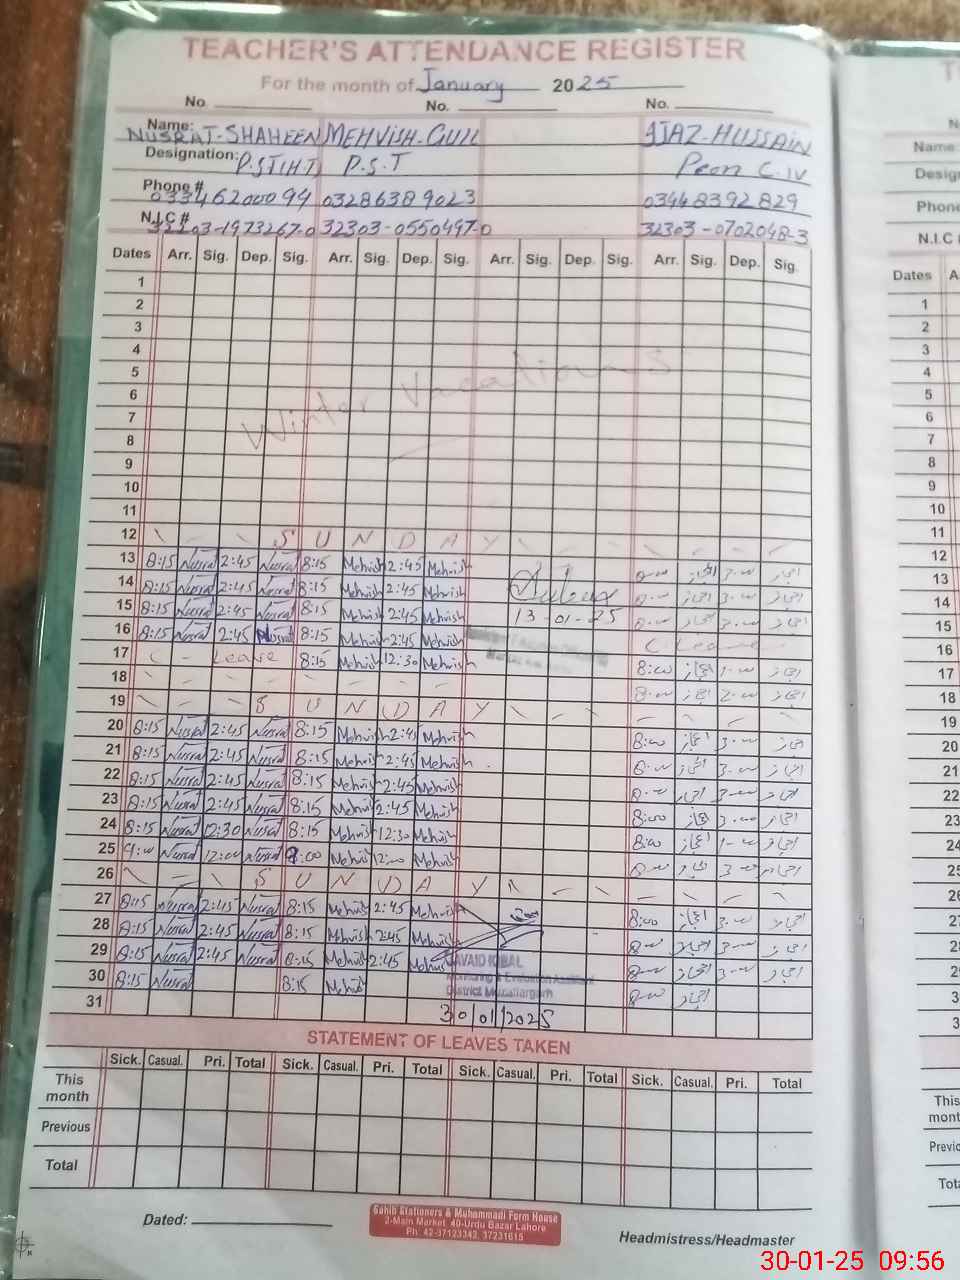 TEACHER'S ATTENDANCE REGISTER
For the month of January 2025
No. No. No.
Name: NUSRAT-SHAHEEN MEHVISH-GULL AJAZ-HUSSAIN
Designation: P.ST(H.T) P.S.T Peon C.IV
Phone # 03346200094 03286389023 03448392829
N.I.C # 32203-1973267-0 32303-0550497-0 32303-0702048-3
Dates Arr. Sig. Dep. Sig. Arr. Sig. Dep. Sig. Arr. Sig. Dep. Sig. Arr. Sig. Dep. Sig.
1
2
3
4
5
Winter Vacations
6
7
8
9
10
11
12 S U N D A Y
13 8:15 Nusrat 2:45 Nusrat 8:15 Mehvish 2:45 Mehvish اعجاز اعجاز
14 8:15 Nusrat 2:45 Nusrat 8:15 Mehvish 2:45 Mehvish اعجاز اعجاز
15 8:15 Nusrat 2:45 Nusrat 8:15 Mehvish 2:45 Mehvish 13-01-25 اعجاز اعجاز
16 8:15 Nusrat 2:45 Nusrat 8:15 Mehvish 2:45 Mehvish C Leave
17 C - Leave 8:15 Mehvish 12:30 Mehvish 8:00 اعجاز اعجاز
18 اعجاز اعجاز
19 S U N D A Y
20 8:15 Nusrat 2:45 Nusrat 8:15 Mehvish 2:45 Mehvish 8:00 اعجاز اعجاز
21 8:15 Nusrat 2:45 Nusrat 8:15 Mehvish 2:45 Mehvish اعجاز اعجاز
22 8:15 Nusrat 2:45 Nusrat 8:15 Mehvish 2:45 Mehvish اعجاز اعجاز
23 8:15 Nusrat 2:45 Nusrat 8:15 Mehvish 2:45 Mehvish 8:00 اعجاز اعجاز
24 8:15 Nusrat 12:30 Nusrat 8:15 Mehvish 12:30 Mehvish 8:00 اعجاز اعجاز
25 9:00 Nusrat 12:00 Nusrat 9:00 Mehvish 12:00 Mehvish اعجاز اعجاز
26 S U N D A Y
27 8:15 Nusrat 2:45 Nusrat 8:15 Mehvish 2:45 Mehvish 8:00 اعجاز اعجاز
28 8:15 Nusrat 2:45 Nusrat 8:15 Mehvish 2:45 Mehvish اعجاز اعجاز
29 8:15 Nusrat 2:45 Nusrat 8:15 Mehvish 2:45 Mehvish JAVAID IQBAL اعجاز اعجاز
30 8:15 Nusrat 8:15 Mehvish Monitoring & Evaluation Assistant اعجاز
District Muzaffargarh
31 30/01/2025
STATEMENT OF LEAVES TAKEN
Sick. Casual. Pri. Total Sick. Casual. Pri. Total Sick. Casual. Pri. Total Sick. Casual. Pri. Total
This month
Previous
Total
Dated:
Sahib Stationers & Muhammadi Form House
2-Main Market 40-Urdu Bazar Lahore
Ph: 42-37123342, 37231615
Headmistress/Headmaster
Name
Phone
N.I.C
Dates
1
2
3
4
5
6
7
8
9
10
11
12
13
14
15
16
17
18
19
20
21
22
23
24
30-01-25 09:56